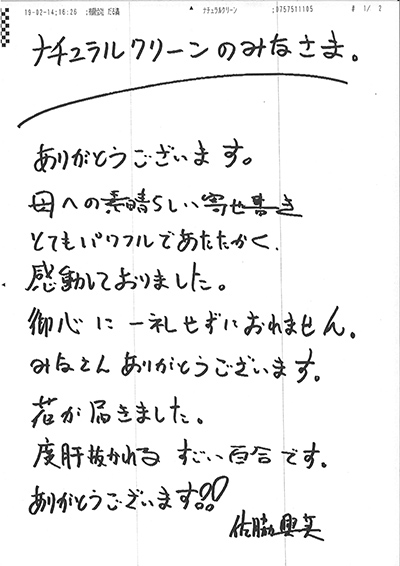 19-02-14;16:26 ;
ナチュラルクリーン
;0757511105
# 1/ 2
ナチュラルクリーンのみなさま。
ありがとうございます。
母への素晴らしい寄せ書き
とてもパワフルであたたかく、
感動しておりました。
御心に一礼せずにおれません。
みなさんありがとうございます。
花が届きました。
度肝抜かれる すごい百合です。
ありがとうございます!!
佐脇